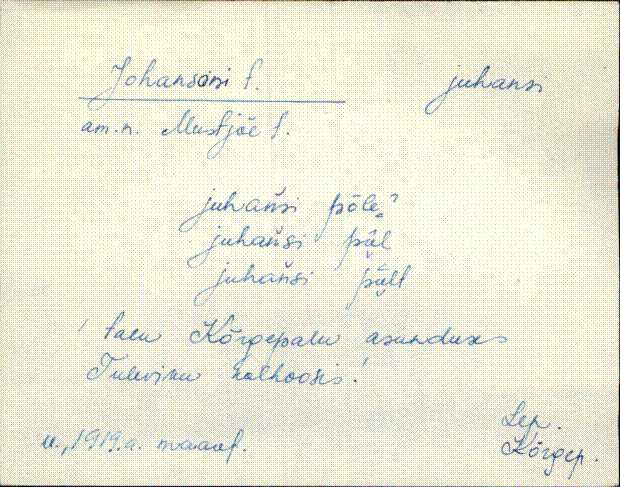 Johansoni t. juhansi
am.n. Mustjõe t.
juhaňsi põlɛ̬ˀ
juhaňsi pǖl
juhaňsi pǖlt
' talu Kõrgepalu asunduses
Tuleviku kolhoosis.'
u., 1919.a. maaref.
Lep.
Kõrgep.